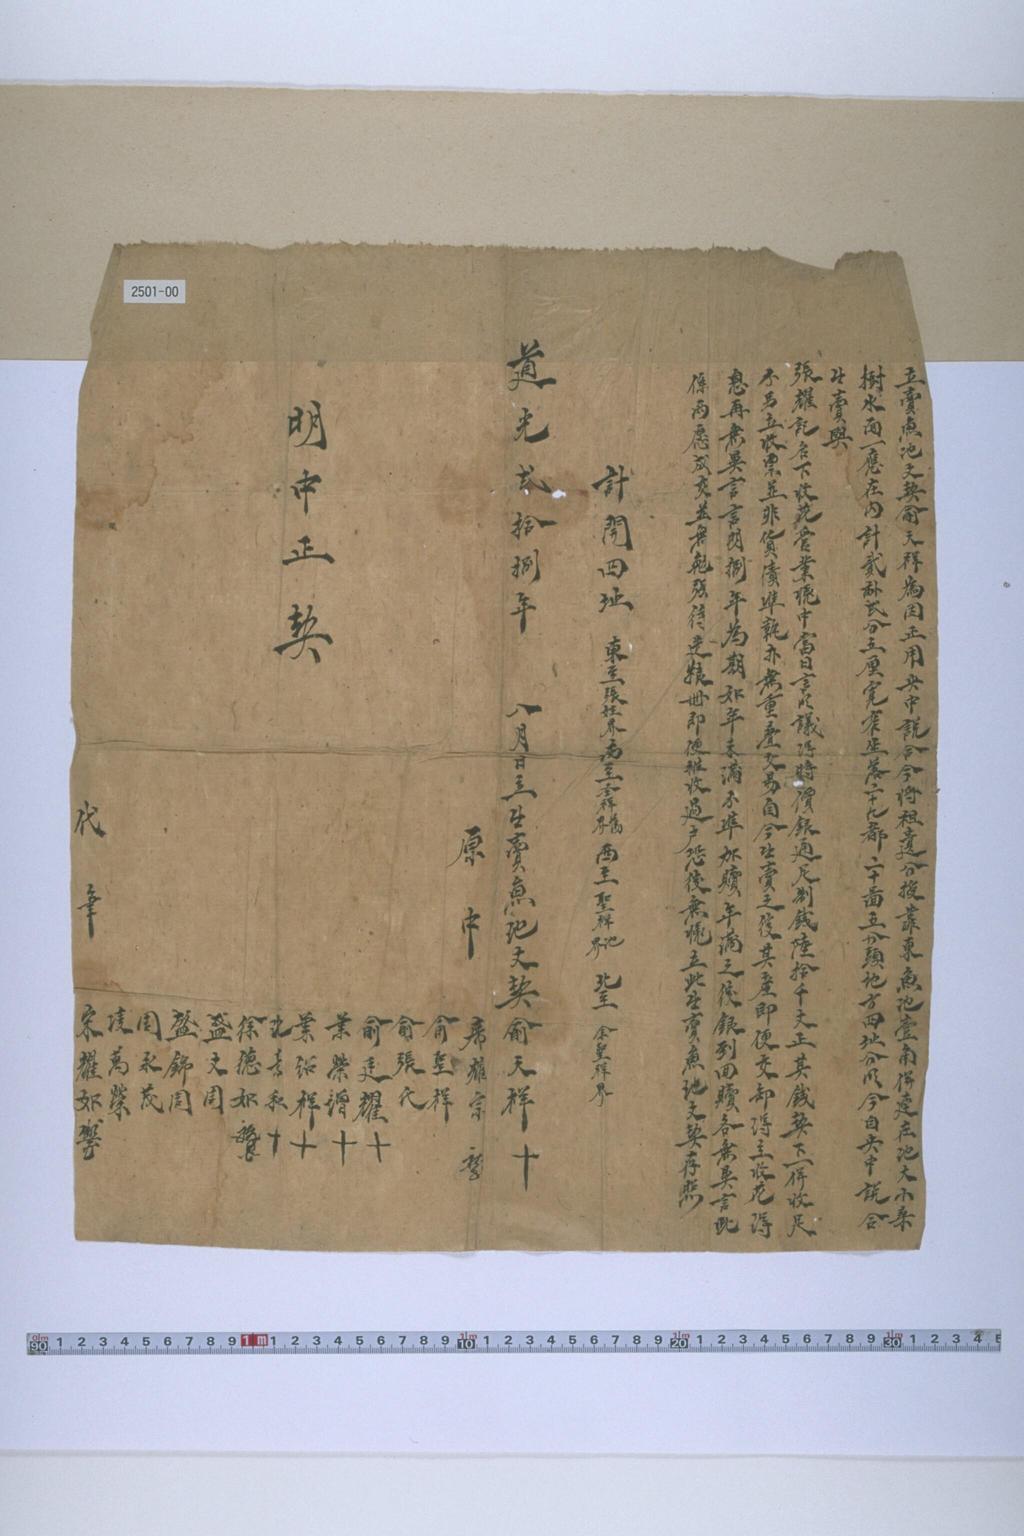 立賣魚池文契俞天祥為因正用央中說合今將祖遺分授靠東魚池壹角併連在池大小桑
樹水面一應在內計貳畝弍分五厘寬窄坐落二十九都二十啚五分頭地方四址分明今自央中說合
生賣與
張耀記名下收花管業憑中當日言明議得時價銀通足制錢陸拾千文正其錢契下一併收足
不另立收票並非貨債準執亦無重疊交易自今生賣之後其產即便交卸得主收花得
息再無異言言明捌年為期如年未滿不準加贖年滿之後銀到回贖各無異言此
係兩愿成交並無勉强待造糧冊即便推收過戶恐後無憑立此生賣魚池文契存照
計開四址 東至張姓界 南至天祥舊界 西至聖祥池界 北至余聖祥界
道光弍拾捌年 八月 日立生賣魚池文契俞天祥十
原中 宗
俞聖祥
俞張氏
俞廷耀十
葉榮增十
葉紹祥十
十
徐德如
盛文周
盛錦周
周永茂
淩萬榮
明中正契
代筆 宋耀如
2501-00